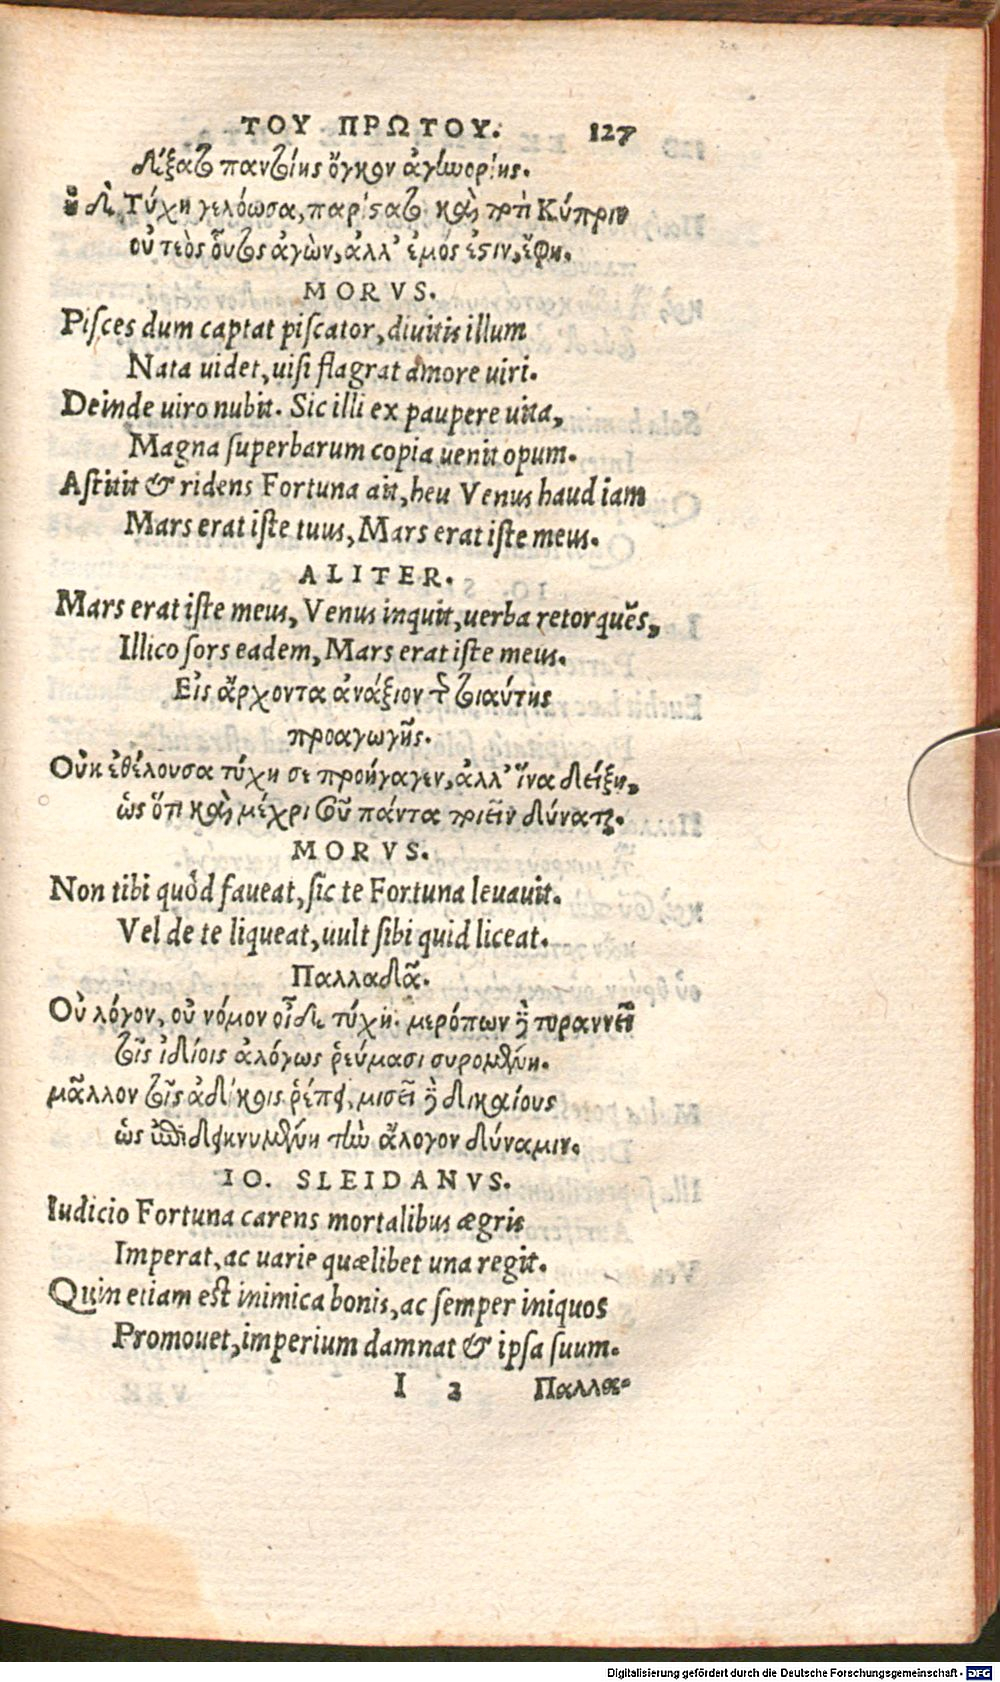 ΤΟΥ ΠΡΩΤΟΥ. 127
δέξατο παντοίης ὄγκον ἀγηνορίης.
ἡ δὲ Τύχη γελόωσα, παρίστατο καὶ ποτὶ Κύπριν
οὐ τεὸς οὗτος ἀγὼν, ἀλλ' ἐμός ἐστιν, ἔφη.
MORVS.
Piſces dum captat piſcator, diuitis illum
Nata uidet, uiſi flagrat amore uiri.
Deinde uiro nubit. Sic illi ex paupere uita,
Magna ſuperbarum copia uenit opum.
Aſtitit & ridens Fortuna ait, heu Venus haud iam
Mars erat iſte tuus, Mars erat iſte meus.
ALITER.
Mars erat iſte meus, Venus inquit, uerba retorquẽs,
Illico ſors eadem, Mars erat iſte meus.
Εἰς ἄρχοντα ἀνάξιον τῆς τοιαύτης
προαγωγῆς.
Οὐκ ἐθέλουσα τύχη σε προήγαγεν, ἀλλ' ἵνα δείξῃ,
ὡς ὅτι καὶ μέχρι σοῦ πάντα ποιεῖν δύναται.
MORVS.
Non tibi quòd faueat, ſic te Fortuna leuauit.
Vel de te liqueat, uult ſibi quid liceat.
Παλλαδᾶ.
Οὐ λόγον, οὐ νόμον οἶδε τύχη. μερόπων δὲ τυραννεῖ
τοῖς ἰδίοις ἀλόγως ῥεύμασι συρομένη.
μᾶλλον τοῖς ἀδίκοις ῥέπει, μισεῖ δὲ δικαίους
ὡς ἐπιδεικνυμένη τὴν ἄλογον δύναμιν.
IO. SLEIDANVS.
Iudicio Fortuna carens mortalibus ægris
Imperat, ac uarie quælibet una regit.
Quin etiam eſt inimica bonis, ac ſemper iniquos
Promouet, imperium damnat & ipſa ſuum.
I 2 Παλλα-
Digitalisierung gefördert durch die Deutsche Forschungsgemeinschaft - DFG